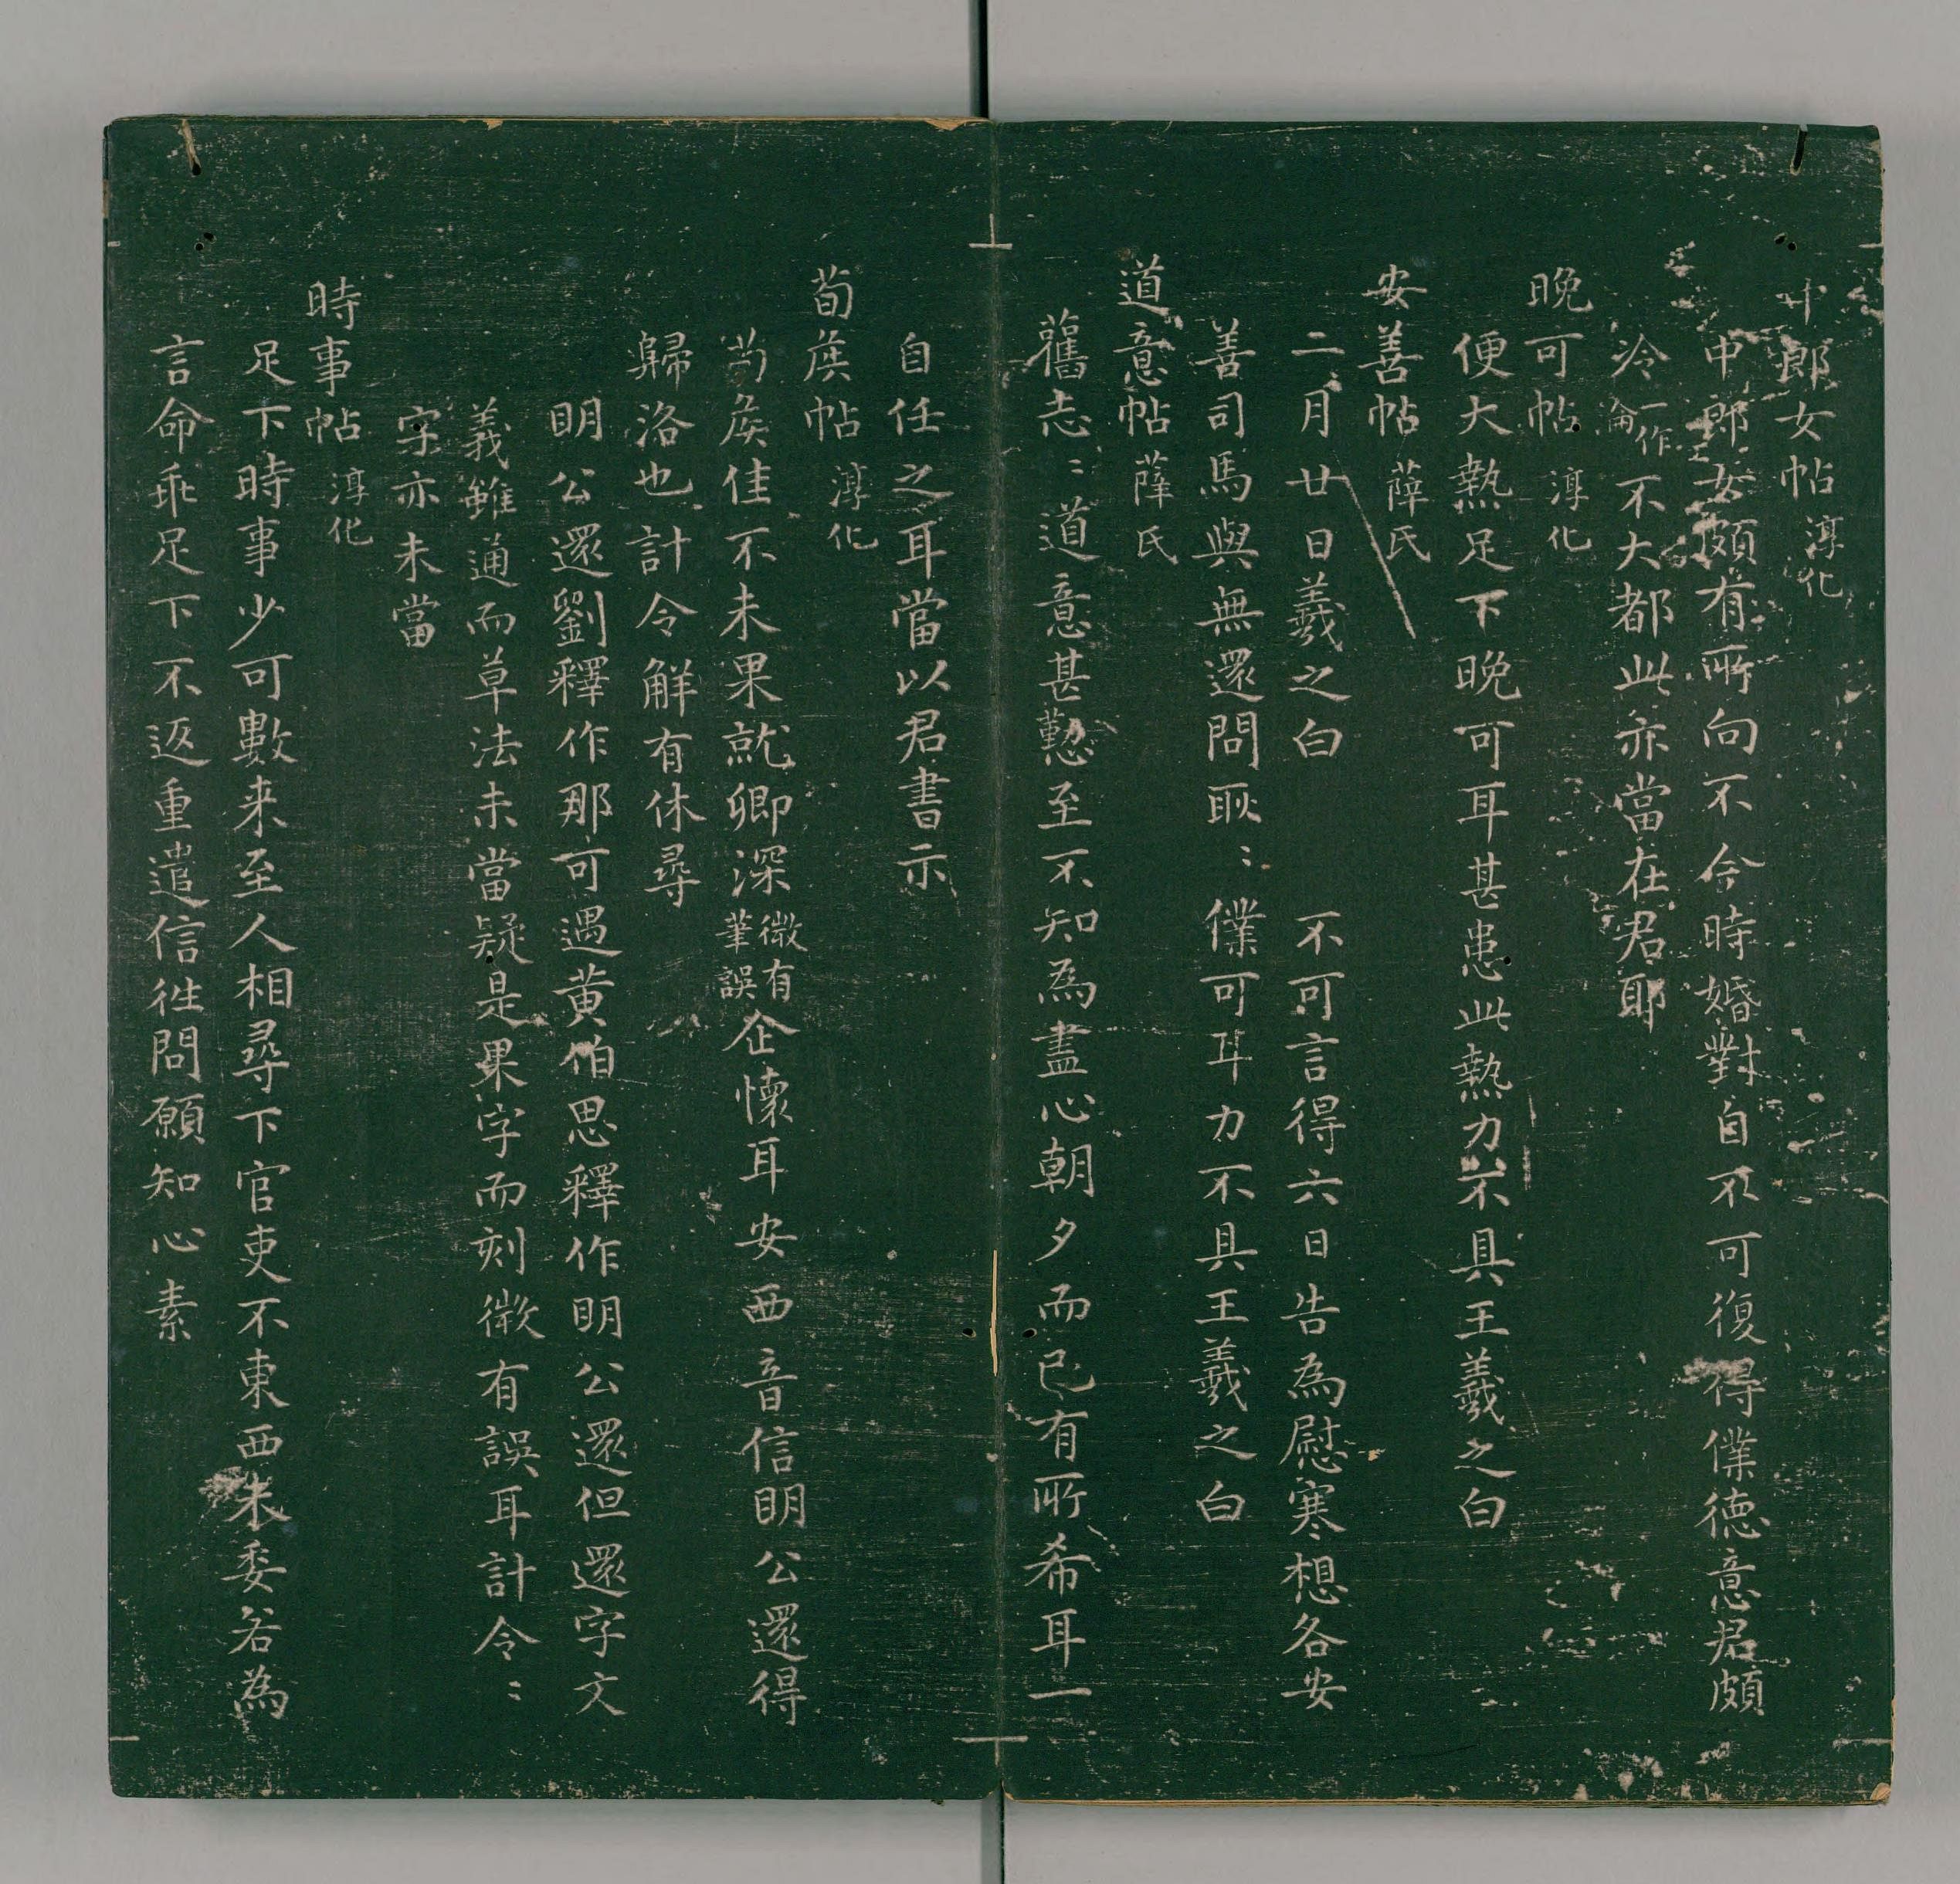 中郎女帖 淳化
中郎女頗有所向不今時婚對自不可復得僕德意君頗
泠一作淪不大都此亦當在君耶
晚可帖 淳化
便大熱足下晚可耳甚患此熱力不具王羲之白
安善帖 薛氏
二月廿日羲之白 不可言得六日告為慰寒想各安
善司馬與無還問耿〻僕可耳力不具王羲之白
道意帖 薛氏
舊志〻道意甚懃至不知為盡心朝夕而已有所希耳一
自任之耳當以君書示
荀矦帖 淳化
荀矦佳不未果就卿深微有筆誤企懷耳安西音信明公還得
歸洛也計令解有休尋
明公還劉釋作那可遇黃伯思釋作明公還但還字文
義雖通而草法未當疑是果字而刻微有誤耳計令〻
字亦未當
時事帖 淳化
足下時事少可數来至人相尋下官吏不東西未委若為
言命乖足下不返重遣信徃問願知心素